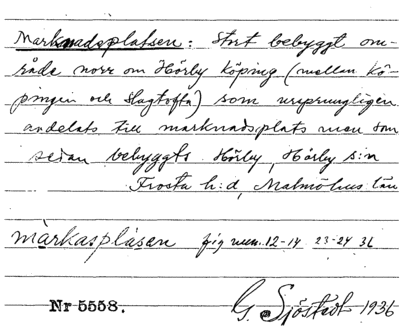 Marknadsplatsen: Stort bebyggt om-
råde norr om Hörby köping (mellan kö-
pingen och Slagtofta) som ursprungligen
avdelats till marknadsplats men som
sedan bebyggts Hörby, Hörby s:n
Frosta h:d, Malmöhus län
màrkasplásen fig. num. 12-14 23-24 36
Nr 5558. G. Sjöstedt 1936